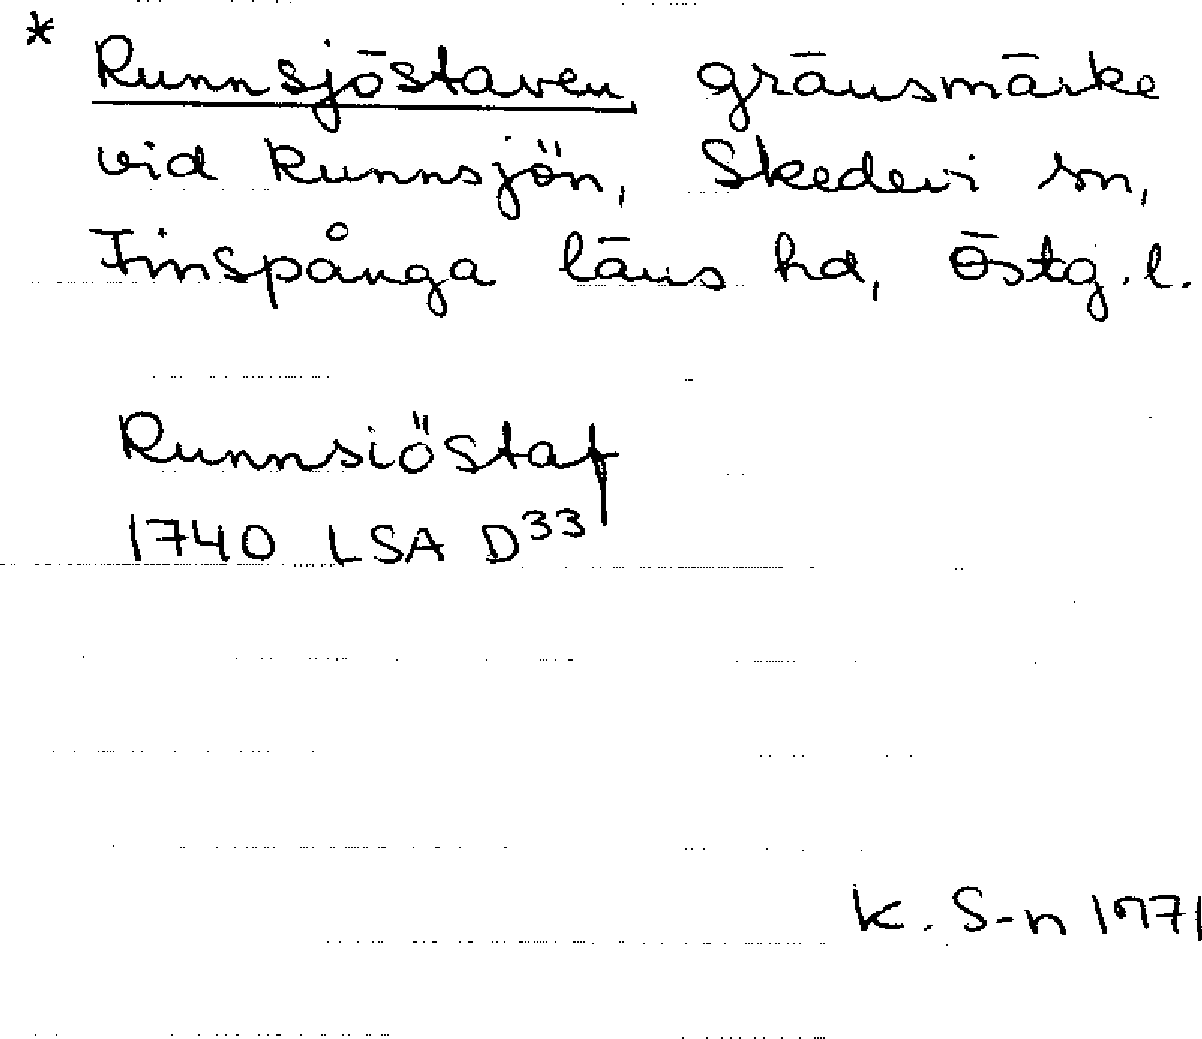 * Runnsjöstaven gränsmärke
vid Runnsjön, Skedevi sn,
Finspånga läns hd, Östg.l.
Runnsiöstaf
1740 LSA D33
K. S-n 1971